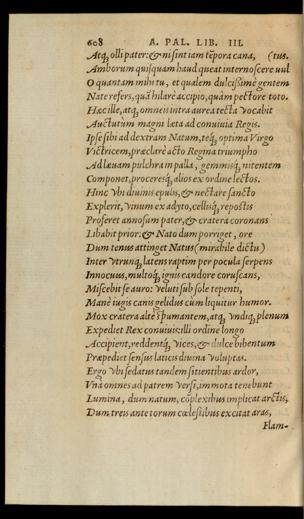 608 A. PAL. LIB. III.
Atq, olli pater: & ni sint iam tẽpora cana, (tus.
Amborum quisquam haud queat internoscere uul
O quantam mihi tu, et qualem dulcissime gentem
Nate refers, quã hilarẽ accipio, quàm pectore toto.
Hæc ille, atq, omneis intra aurea tecta vocabit
Auctutum magni læta ad conuiuia Regis.
Ipse sibi ad dextram Natum, teq, optima Virgo
Victricem, præclarè acto Regina triumpho
Ad læuam pulchram palla, gemmisq, nitentem
Componet, proceresq, alios ex ordine lectos.
Hinc vbi diuinis epulis, & nectare sancto
Explerit, vinum ex adyto, cellisq, repostis
Proferet annosum pater, & cratera coronans
Libabit prior: & Nato dum porriget, ore
Dum tenus attinget Natus (mirabile dictu)
Inter vtrunq, latens raptim per pocula serpens
Innocuus, multoq, ignis candore coruscans,
Miscebit se auro: veluti sub sole tepenti,
Manè iugis canis gelidus cùm liquitur humor.
Mox cratera altè spumantem, atq, vndiq, plenum
Expediet Rex conuiuis: illi ordine longo
Accipient, reddentq, vices, & dulce bibentum
Præpediet sensus laticis diuina voluptas.
Ergo vbi sedatus tandem sitientibus ardor,
Vnà omnes ad patrem versi, immota tenebunt
Lumina, dum natum, cõplexibus implicat arctis,
Dum treis ante torum cælestibus excitat aras,
Flam-